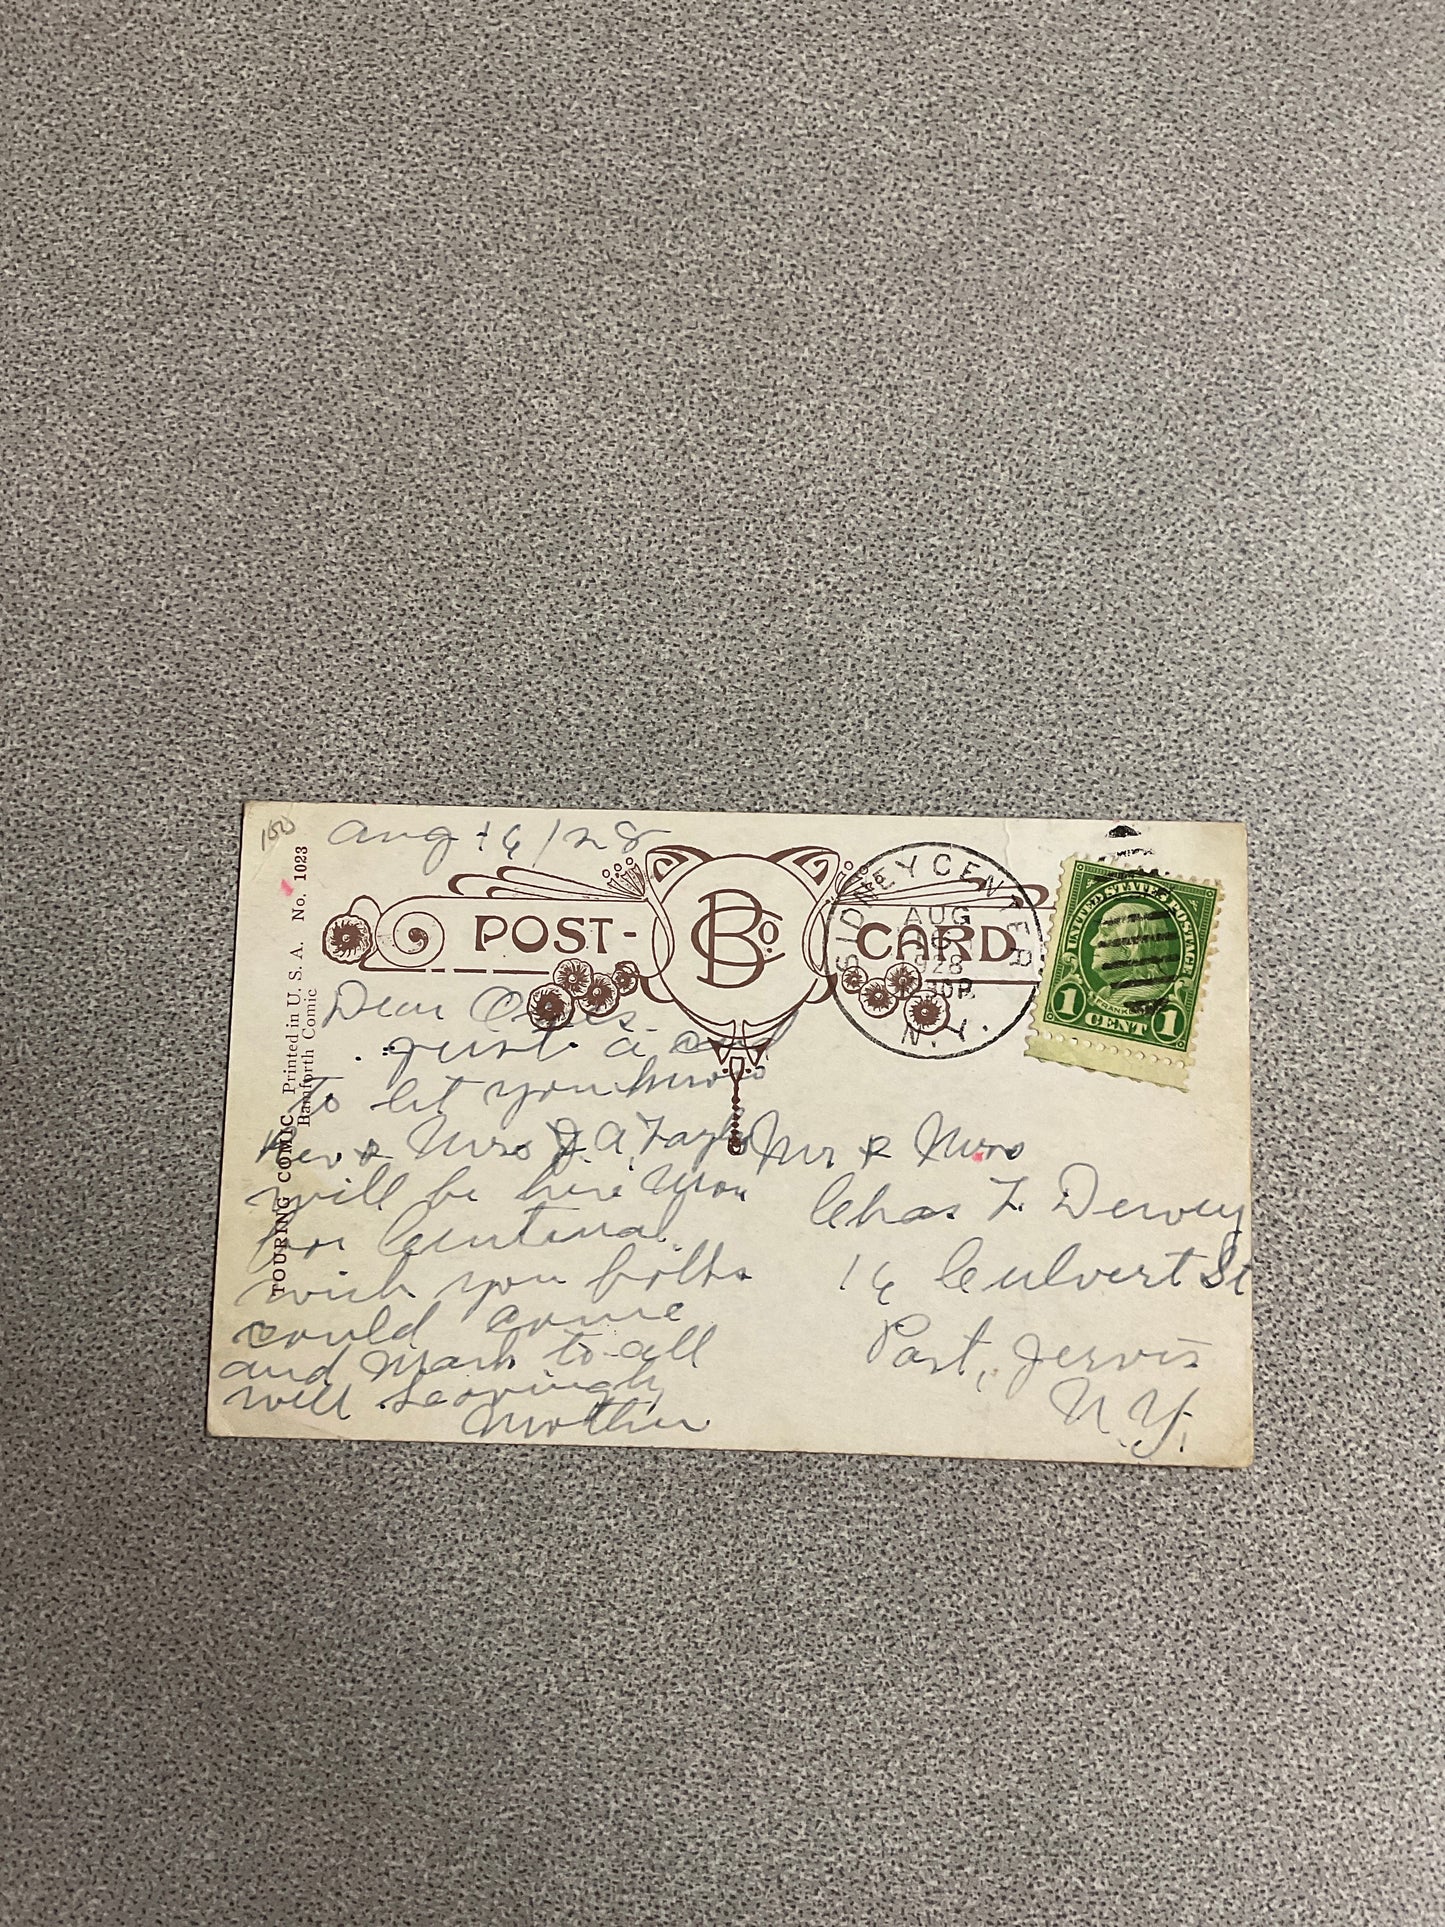 150
Aug 16/28
POST-
B Co.
CARD
SIDNEY CENTER
AUG
1928
N.Y.
UNITED STATES POSTAGE
FRANKLIN
1 CENT 1
TOURING COMIC Printed in U. S. A. No. 1023
Bamforth Comic
Dear
just a card
To let you know
Rev & Mrs J. A. Taylor
will be here
for Centenal.
wish you folks
could come
and to all
well Lovingly
Mother
Mr & Mrs
Chas L. Dewey
16 Culvert St
Port, Jervis
N.Y.